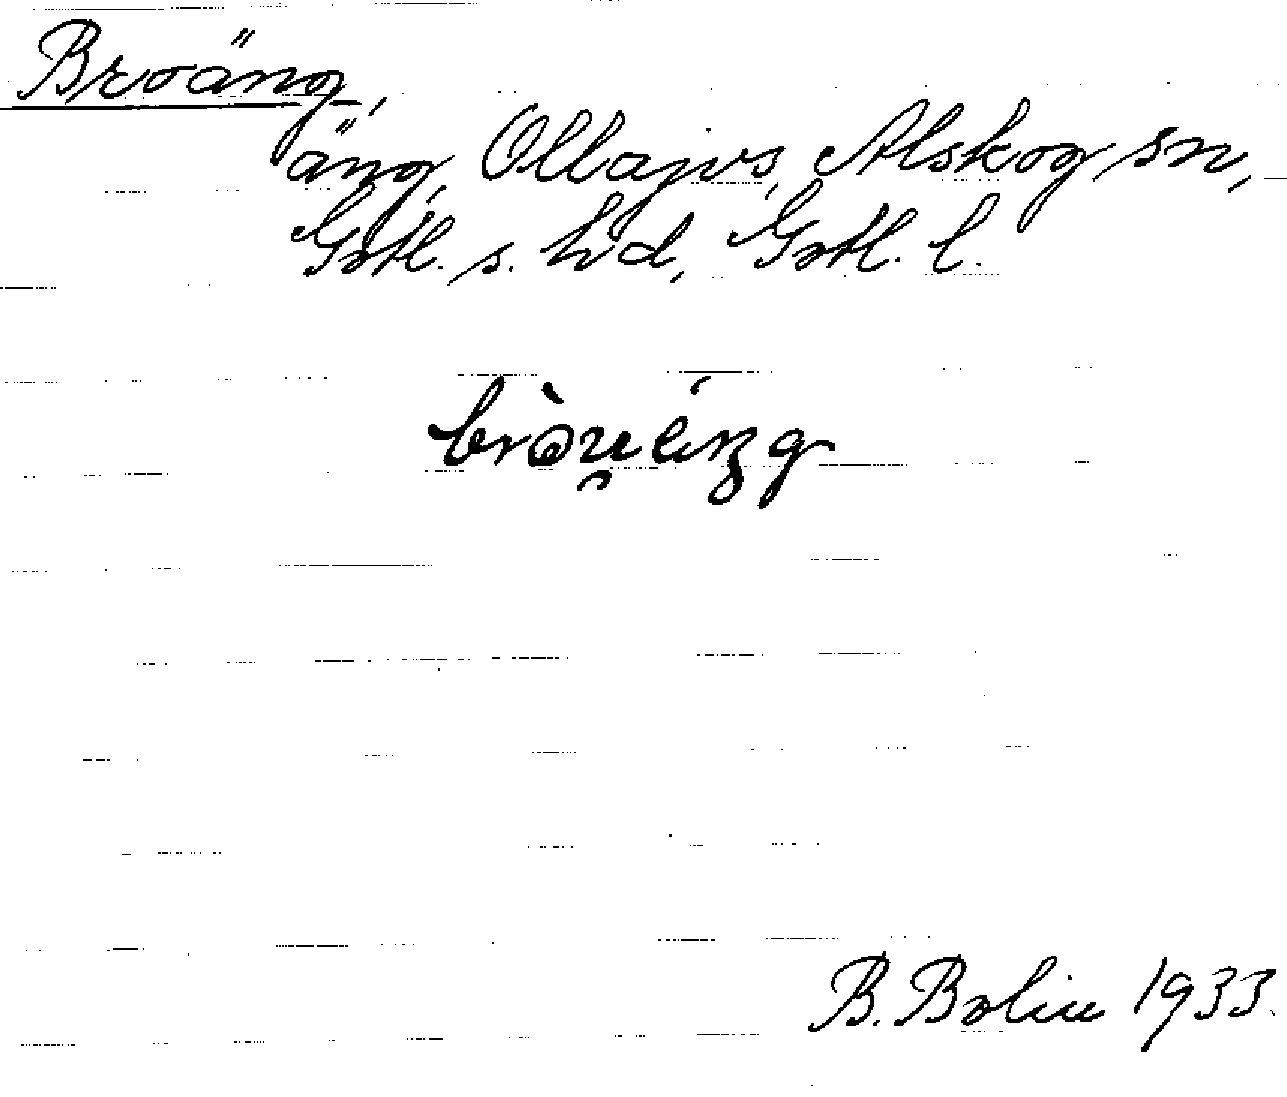 Broäng,
äng, Ollajvs, Alskog sn,
Gotl. s. hd, Gotl. l.
B. Bolin 1933.